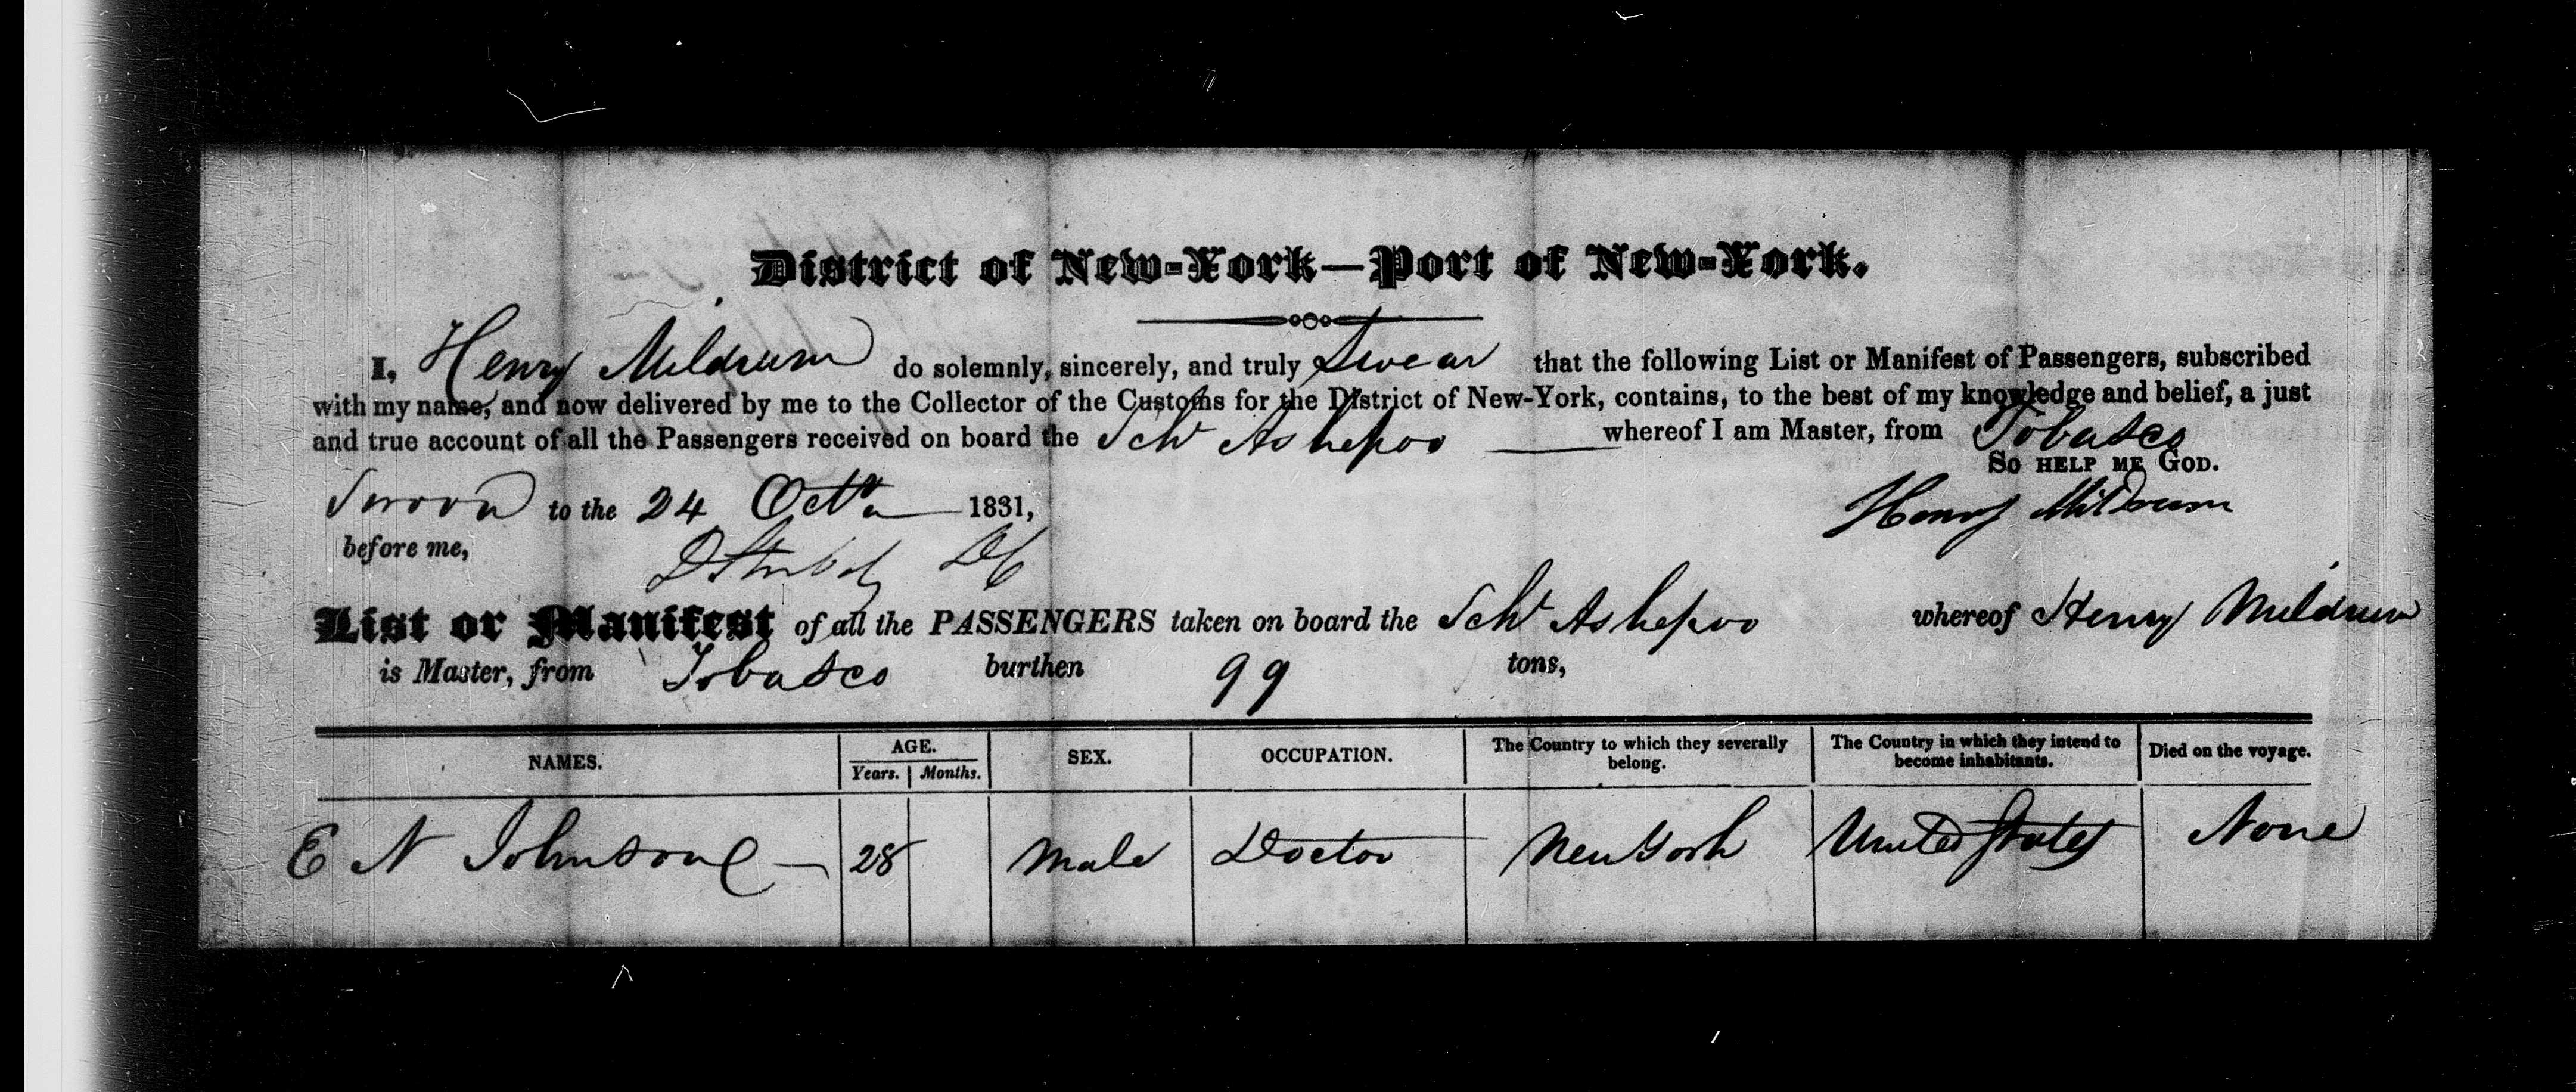 District of New-York—Port of New-York.
I, Henry Mildrum do solemnly, sincerely, and truly Swear that the following List or Manifest of Passengers, subscribed
with my name, and now delivered by me to the Collector of the Customs for the District of New-York, contains, to the best of my knowledge and belief, a just
and true account of all the Passengers received on board the Schr Ashepoo whereof I am Master, from Tobasco
So help me God.
Sworn to the 24 Octr 1831,
Henry Mildrum
before me,
List or Manifest of all the PASSENGERS taken on board the Schr Ashepoo whereof Henry Mildrum
is Master, from Tobasco burthen 99 tons,
NAMES. AGE. Years. Months. SEX. OCCUPATION. The Country to which they severally belong. The Country in which they intend to become inhabitants. Died on the voyage.
E N Johnson 28 Male Doctor New York United States None